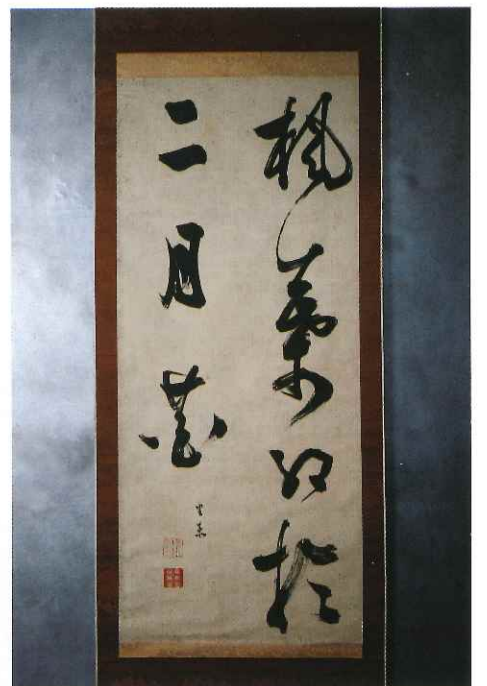 楓葉紅於
二月花